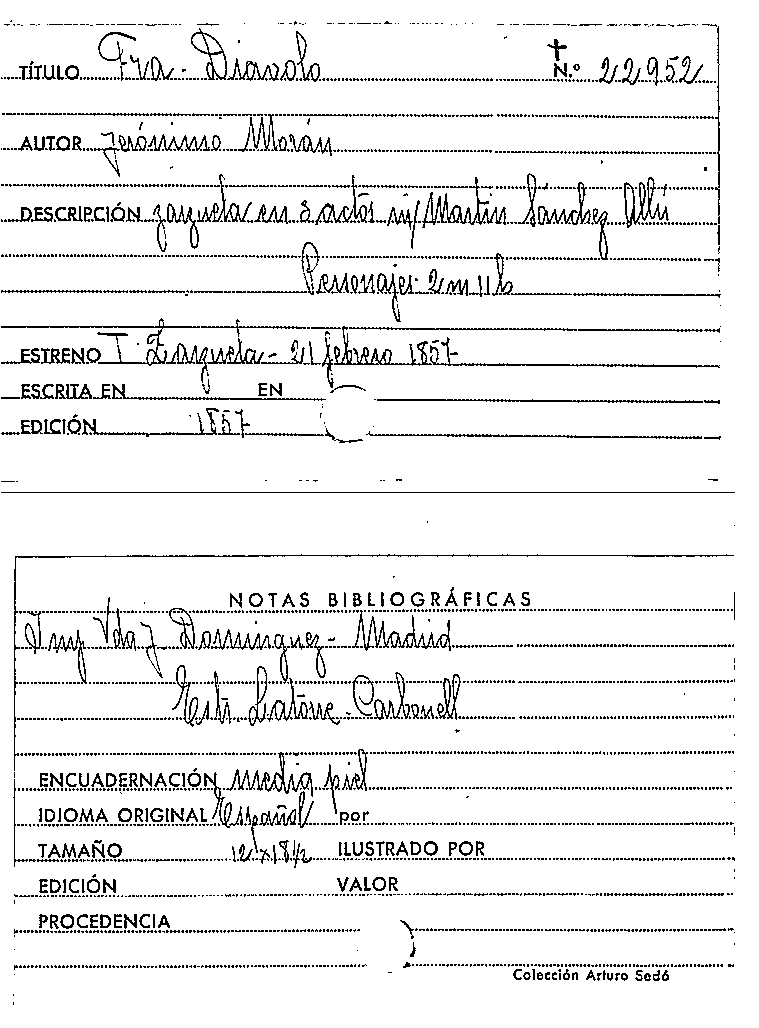 TÍTULO Fra-Diavolo N.º 22952
AUTOR Jerónimo Morán
DESCRIPCIÓN zarzuela en 3 actos m/ Martin Sánchez Allú
Personajes 2 m 11 h
ESTRENO T. Zarzuela - 21 febrero 1857
ESCRITA EN EN
EDICIÓN 1857
NOTAS BIBLIOGRÁFICAS
Imp Vda J Dominguez - Madrid
Estr. Latorre - Carbonell
ENCUADERNACIÓN media piel
IDIOMA ORIGINAL Español por
TAMAÑO 12 x 18 1/2 ILUSTRADO POR
EDICIÓN VALOR
PROCEDENCIA
Colección Arturo Sedó